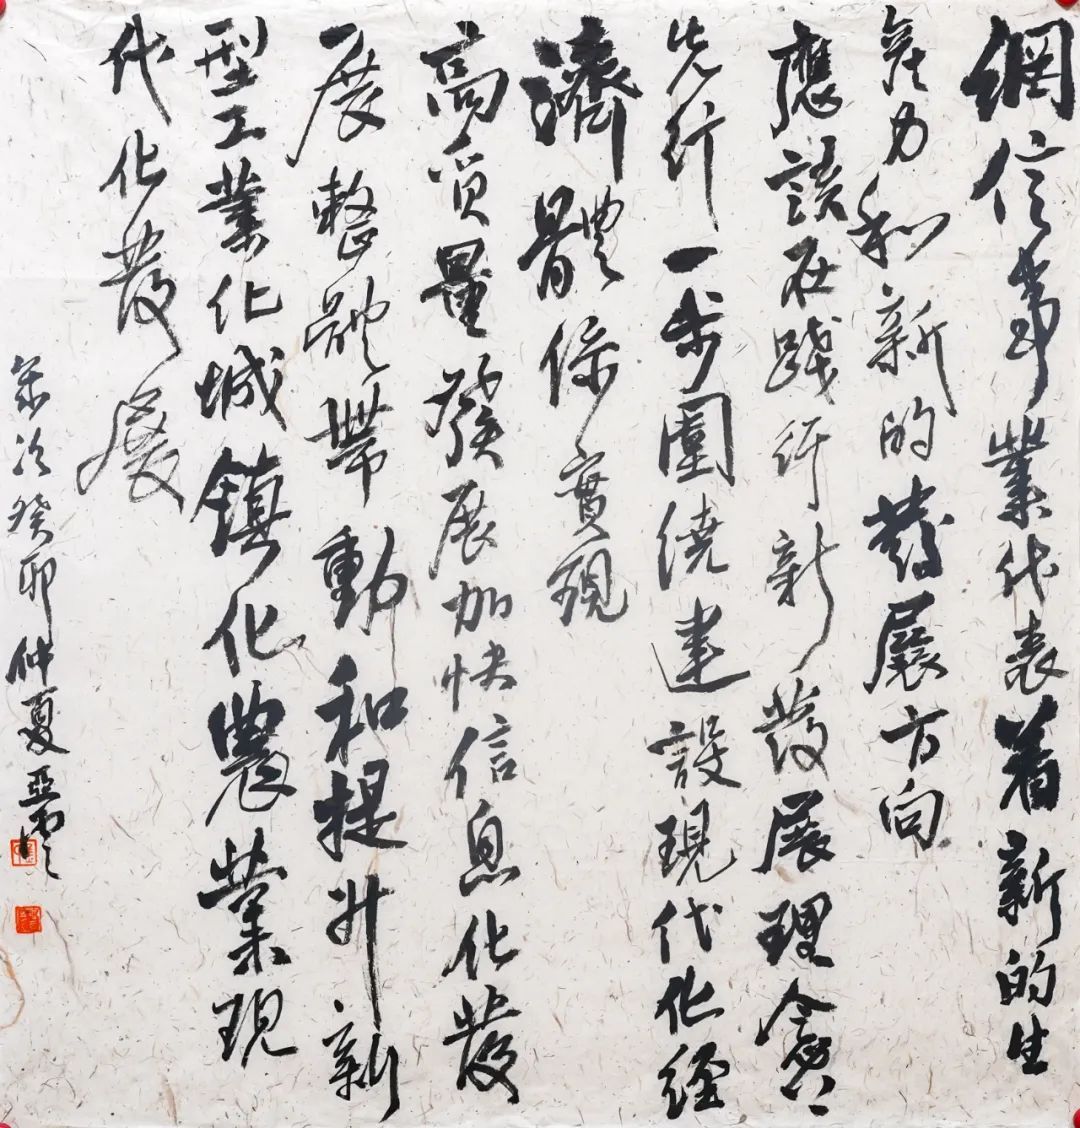 網信事業代表着新的生
産力和新的發展方向
應該在踐行新發展理念
先行一步圍繞建設現代化經
濟體係實現
高質量發展加快信息化發
展整體帶動和提升新
型工業化城鎮化農業現
代化發展
歲次癸卯仲夏亞雲